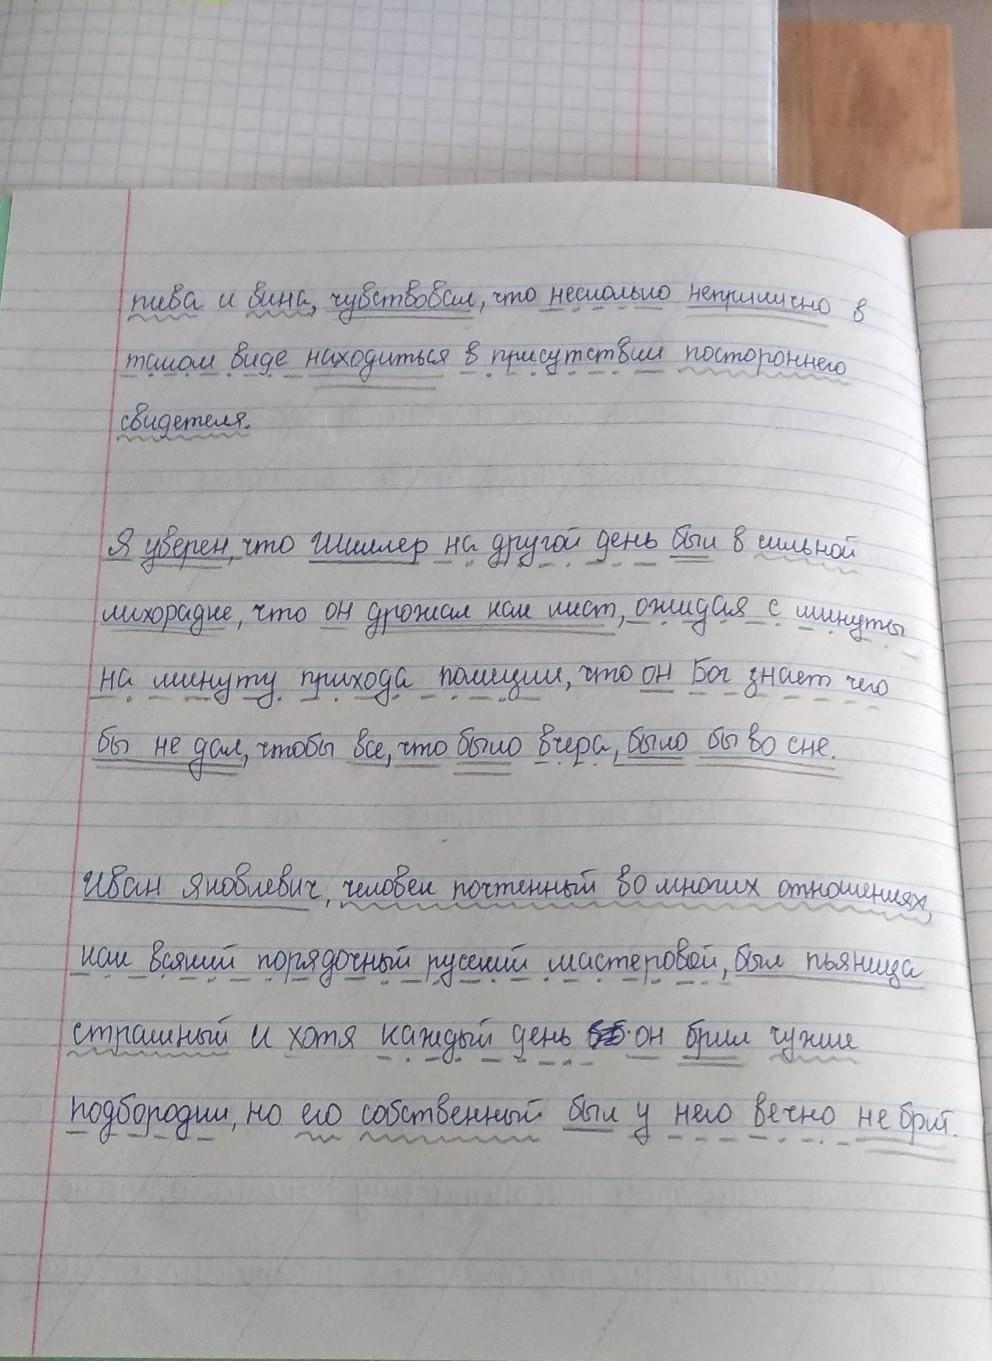 пива и вина, чувствовал, что несколько неприлично в
таком виде находиться в присутствии постороннего
свидетеля.
Я уверен, что Шиллер на другой день был в сильной
лихорадке, что он дрожал как лист, ожидая с минуты
на минуту прихода полиции, что он Бог знает чего
бы не дал, чтобы все, что было вчера, было бы во сне.
Иван Яковлевич, человек почтенный во многих отношениях,
как всякий порядочный русский мастеровой, был пьяница
страшный и хотя каждый день он брил чужие
подбородки, но его собственный был у него вечно не брит.